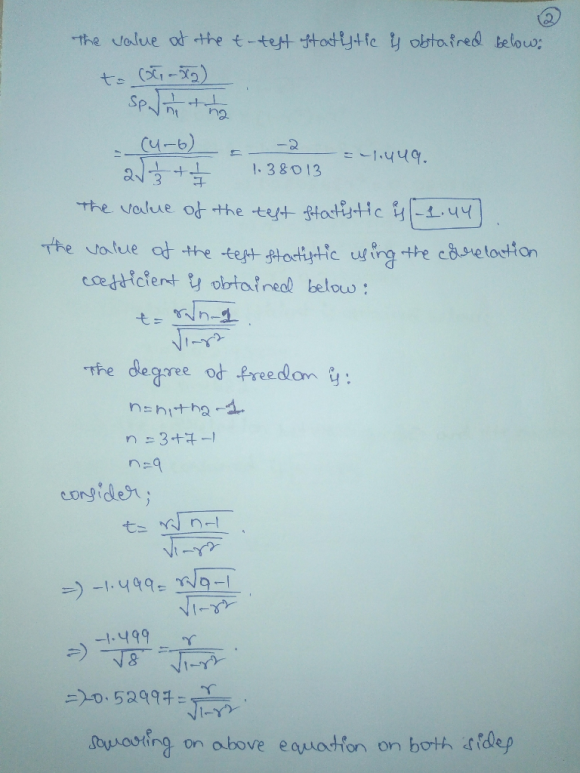 2
The value of the t-test statistic is obtained below:
t = (x̄1 - x̄2) / Sp√(1/n1 + 1/n2)
= (4-6) / 2√(1/3 + 1/7) = -2 / 1.38013 = -1.449.
The value of the test statistic is -1.44.
The value of the test statistic using the correlation
coefficient is obtained below:
t = r√n-1 / √1-r².
The degree of freedom is:
n = n1 + n2 - 1
n = 3+7-1
n=9
consider;
t = r√n-1 / √1-r².
=> -1.499 = r√9-1 / √1-r².
=> -1.499 / √8 = r / √1-r².
=> -0.52997 = r / √1-r².
squaring on above equation on both sides